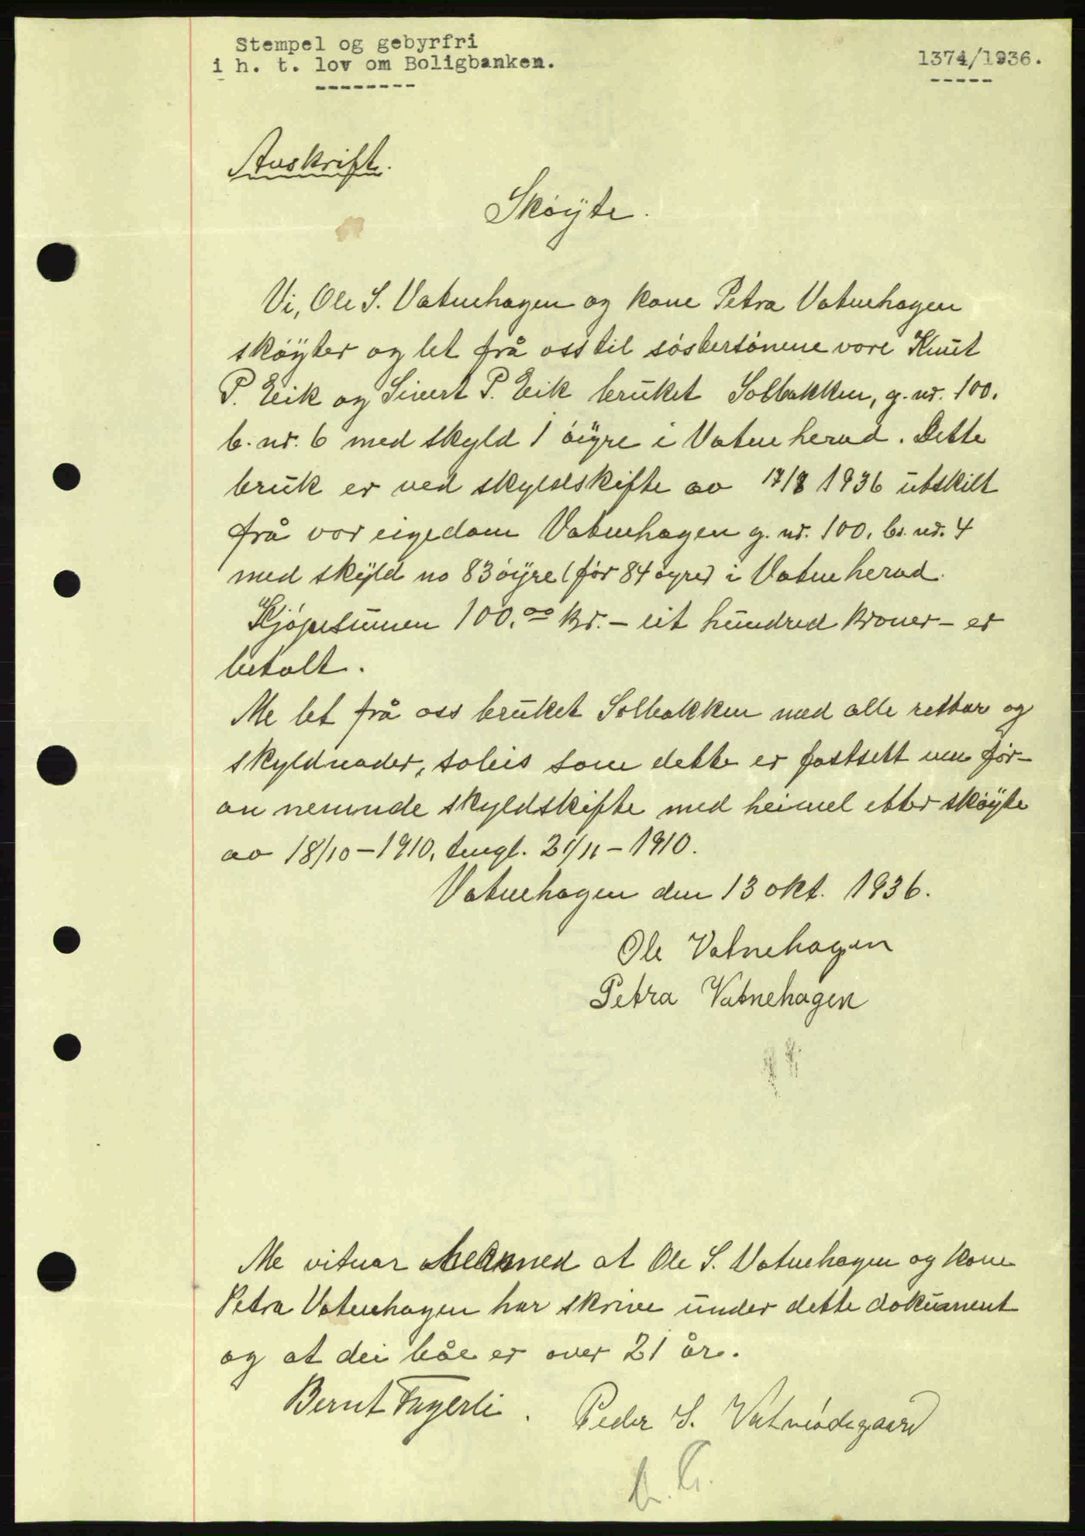 Stempel og gebyrfri
i h. t. lov om Boligbanken.
1374/1936.
Avskrift.
Skøyte.
Vi, Ole S. Vatnehagen og kone Petra Vatnehagen
skøyter og let frå oss til søstersønene vore Knut
P. Eik og Sivert P. Eik bruket Solbakken, g. nr. 100.
b. nr. 6 med skyld 1 øyre i Vatne herad. Dette
bruk er ved skyldskifte av 17/8 1936 utskilt
frå vor eigedom Vatnehagen g. nr. 100. br. nr. 4
med skyld no 83 øyre (før 84 øyre) i Vatne herad.
Kjøpesumen 100.00 kr. - eit hundred kroner - er
betalt.
Me let frå oss bruket Solbakken med alle rettar og
skyldnader, soleis som dette er fastsett um før-
an nemnde skyldskifte med heimel etter skøyte
av 18/10 - 1910, tingl. 21/11 - 1910.
Vatnehagen den 13 okt. 1936.
Ole Vatnehagen
Petra Vatnehagen
Me vitnar at Ole S. Vatnehagen og kone
Petra Vatnehagen har skrive under dette dokument
og at dei båe er over 21 år.
Bernt Fagerli. Peder S. Vatneødegaard